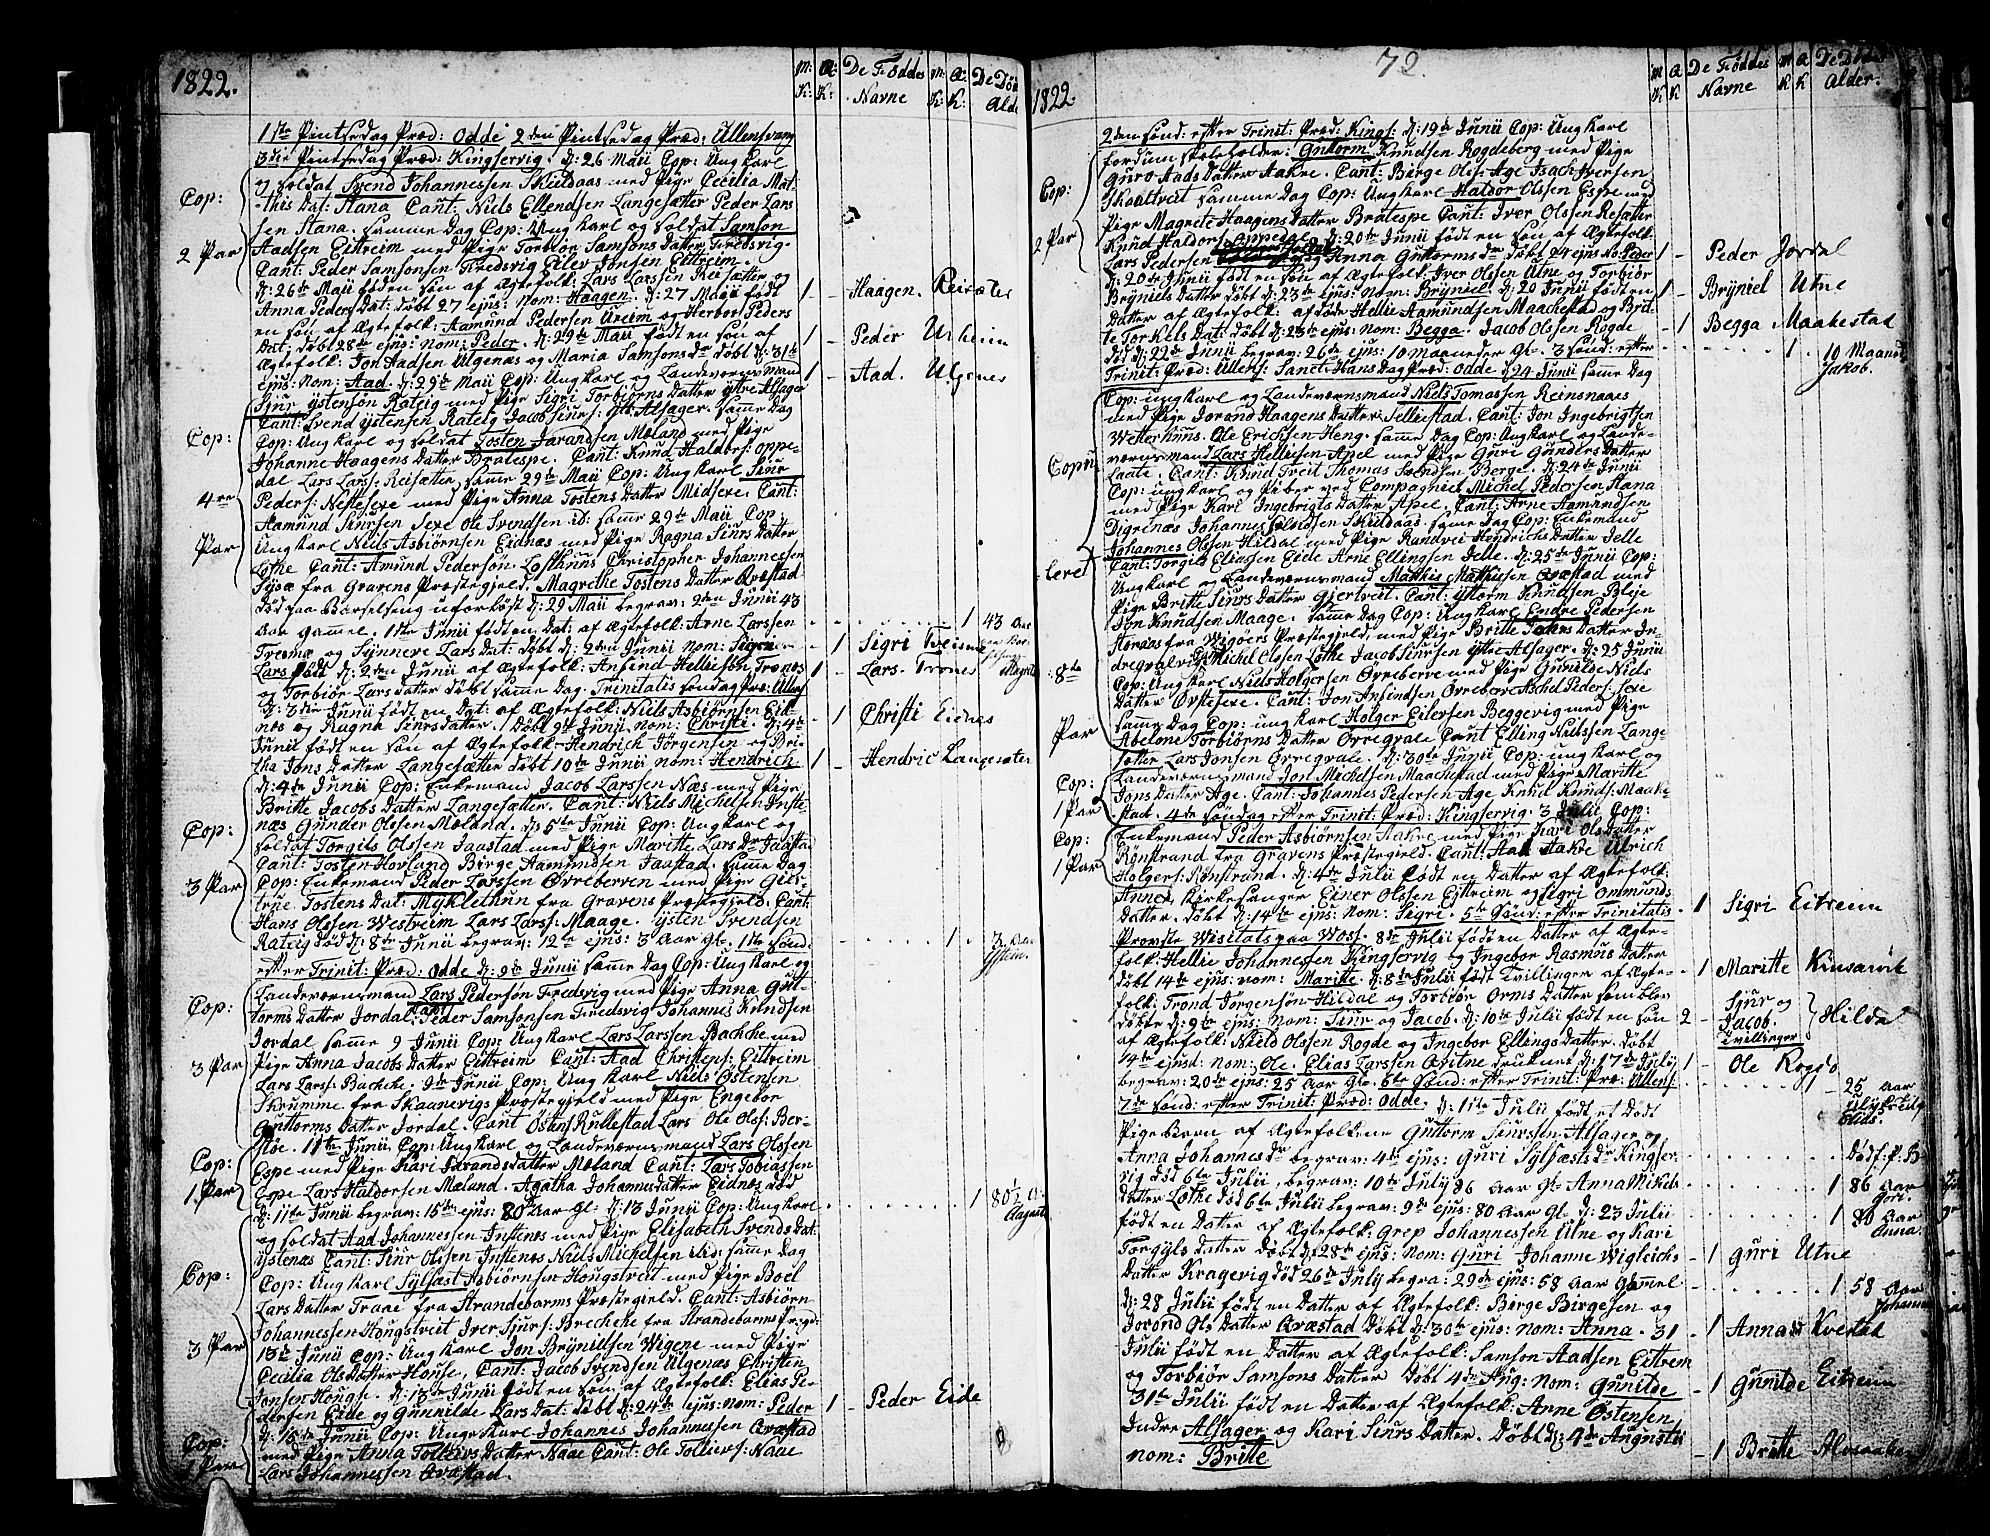 1822.
M: K:
A: K:
De Føddes Navne
M: K:
A: K:
De Døde Alder
1ste Pintsedag Præd: Odde 2den Pintsedag Præd: Ullensvang
3die Pintsedag Præd: Kingservig. d: 26 Maii Cop: Ung Karl
Cop: soldat Svend Johannessen Skieldaas med Pige Cecilia Mat-
this Dat: Hana Cant: Niels Ellendsen Langesætter Peder Lars
sen Hana. samme Dag Cop: Ung Karl og soldat Samson
2 Par Aadsen Eittreim med Pige Torbiør Samsons Datter Fredsvig.
Cant: Peder Samsonsen Fredsvig Eilev Jonsen Eittreim.
d: 26de Maii føden søn af Ægtefolk: Lars Larsen Reisætter og
Anna Peders Dat: døbt 27 ejus: nom: Haagen. d: 27 Maii født 1 - Haagen. Reisæter
en søn af Ægtefolk: Aamund Pedersen Ureim og Herbor Peders
Dat: døbt 28de ejus: nom: Peder. d: 29de Maii født en søn af 1 - Peder Urheim
Ægtefolk: Jon Aadsen Ulgenæs og Maria Samsons dr døbt d: 31te
ejus: nom: Aad. d: 29de Maii Cop: Ung Karl og Landeværnsmand 1 - Aad. Ulgenes
Siur ystensøn Rateig med Pige Sigri Torbiørns Datter ytre Alsager
Cant: Svend ystensen Rateig Jacob Siurs: ytre Alsager. samme Dag
Cop: Cop: Ung Karl og soldat Tosten Jarandsen Mæland med Pige
Johanne Haagens Datter Bratespe. Cant: Knud Haldors: oppe-
dal Lars Lars: Reisætter samme 29de Maii Cop: Ung Karl Siur
4re Peders: Nestesexe med Pige Anna Tostens Datter Midsexe. Cant:
Aamund Siursen Sexe Ole Svendsen id: samme 29de Maii Cop:
Par Ung Karl Niels Asbiørnsen Eidnæs med Pige Ragna Siurs Datter
Lothe Cant: Amund Pedersøn. Lofthuus Christopher Johannessen
Sysæ fra Gravens Præstegjeld. Magrethe Tostens Datter Qvæstad
død paa Barselseng uforløst d: 29 Maii begrav: 2den Junii 43
Aar gamme. 1ste Junii født en Dat: af Ægtefolk: Arne Larssen 1 43 Aar
Tresnæ og Synneve Lars Dat: døbt d: 2den Junii nom: Sigri 1 Sigri Treisnæ
Lars født d: 2den Junii af Ægtefolk: Anfind Hellisøn Tronæs 1 - Lars. Trones Magrite
og Torbiør Lars datter døbt samme Dag. Trinitatis søndag Præd: Ullens
d: 3die Junii født en Dat: af Ægtefolk: Niels Asbiørnsen Eid-
næs og Ragna Siursdatter. Døbt 9de Junii nom: Christi. d: 4de - 1 Christi Eidnes
Junii født en søn af Ægtefolk: Hendrich Jørgensen og Bri-
tha Jons datter Langesætter døbt 10de Junii nom: Hendrich. 1 - Hendric Langesæter
d: 4de Junii Cop: Enkemand Jacob Larssen Næs med Pige
Britte Jacobs Datter Langesætter. Cant: Niels Michelsen Inste-
Cop: næs Gunder Olssen Mæland. d: 5te Junii Cop: Ung Karl og
soldat Torgils Olssen Jaastad med Pige Maritte Lars Dr Jaastad
Cant: Tosten Hovland Birge Aamundsen Jaastad. samme Dag
3 Par Cop: Enkemand Peder Larssen Øvreberven med Pige Gier-
true Tostens Dat: Myklethun fra Gravens Præstegjeld. Cant:
Hans Olssen Westreim Lars Lars: Maage. ysten Svendsen
Rateig død d: 8de Junii begrav: 12te ejus: 3 Aar Gl. 1ste Sønd: 1 3 Aar ystein.
efter Trinit: Præd: Odde d: 9de Junii samme Dag Cop: Ung Karl og
Cop: Landeværnsmand Lars Pedersøn Fredsvig med Pige Anna Gut-
torms Datter Jordal. Cant: Peder Samsonsen Fredsvig Johannes Knudsen
Jordal samme 9 Junii Cop: Ung Karl Lars Larssen Bachche med
3 Par Pige Anna Jacobs Datter Eittreim Cant: Aad Christens: Eittreim
Lars Lars: Bachche. Junii Cop: Ung Karl Niels Østensen
Skrumme. fra Skaanevigs Præstegjeld med Pige Engebor
Guttorms Datter Jordal. Cant Østen Rullestad Lars Ole Ols: Ber-
fløe. 11te Junii Cop: Ung Karl og Landeværnsmand Lars Olssen
Cop: Espe med Pige Kari Jarands datter Mæland Cant: Lars Tobiassen
1. Par Espe Lars Haldorsen Mæland. Agatha Johannes datter Eidnæs død
d: 11te Junii begrav: 15de ejus: 80 Aar Gl. d: 13 Junii Cop: Ung Karl 1 80½ A: Aagate
og soldat Aad Johannessen Instenæs med Pige Elisabeth Svends Dat:
ystenæs Cant: Siur Olssen Instenæs Niels Michelsen id: samme Dag
Cop: Cop: Ung Karl Sylfæst Asbiørnsen Hougstveit med Pige Boel
Lars Datter Traae fra Strandebarms Præstegjeld. Cant: Asbiørn
Johannessen Hougstveit Iver Sjurs: Brechche fra Strandebarms Præstgd:
3 Par 13de Junii Cop: Ung Karl Jon Brynildsen Wigene med Pige
Cecilia Ols Datter House, Cant: Jacob Svendsen Ulgenæs Christen
Jonsen Hougse. d: 13de Junii født en søn af Ægtefolk: Elias Pe-
dersen Eide og Gunnilde Lars Dat: døbt d: 24de ejus: nom: Peder 1 - Peder Eide
d: 15de Junii Cop: Unge Karl Johannes Johannessen Qvæstad
Cop: med Pige Anna Tolleivs Datter Naae Cant: Ole Tolleivs: Naae
1 Par Lars Johannessen Qvæstad.
72.
1822.
M K
A K
De Føddes Navne
M K
A K
De Dødes Alder.
2den sønd: efter Trinit: Præd: Kings: d: 19de Junii Cop: Ung Karl
fordum skoleholder: Guttorm Knudsen Rogdeberg med Pige
Guro Aads Datter Aakre. Cant: Birge Ols: Age Isach Iversen
Cop: Skaaltveit samme Dag Cop: Ung Karl Haldor Olssen Espe med
Pige Magrete Haagens Datter Bratespe Cant: Iver Olssen Resætter
2 Par Knud Haldors: oppedal d: 20de Junii født en søn af Ægtefolk:
Lars Pedersen Anna Guttorms dr døbt 24 ejus No: Peder 1 - Peder Jordal
d: 20de Junii født en søn af Ægtefolk: Iver Olssen Utne og Torbiør
Bryniels Datter døbt d: 23de ejus: nom: Bryniel. d: 20 Junii født en 1 - Bryniel Utne
Datter af Ægtefolk: afdøde Hellie Aamundsen Maachestad og Brit-
te Torkels Dat: døbt d: 23de ejus: nom: Begga. Jacob Olssen Rogde - 1 Begga Maakestad
død d: 22de Junii begrav: 26de ejus: 10 maaneder Gl. 3 sønd: efter 1 10 Maaned Jakob.
Trinit: Præd: Ullens: Sanct Hans Dag Præd: Odde d 24 Junii samme Dag
Cop: ung Karl og Landeværnsmand Niels Tomassen Reinsnaaes
med Pige Jorand Haagens Datter Jelliestad. Cant: Jon Ingebrigtsen
Wetterhuus. Ole Erichsen Heng. samme Dag Cop: Ung Karl og Lande-
Copu værnsmand Lars Hellisen Apel med Pige Guri Gunders Datter
Laate. Cant: Knud Freit Thomas Svendsen Berge. d: 24de Junii
Cop: ung Karl og Piber ved Compagniet Michel Pedersen Hana
med Pige Kari Ingebrigts Datter Apel. Cant: Arne Aamundsen
Digrenæs Johannes Skieldaas. samme Dag Cop: Enkemand
Johannes Olssen Hildal med Pige Randvei Hendrichs Datter Jelle
leret Cant: Torgils Eliassen Eide Arne Ellingsen Jelle. d: 25de Junii Cop:
Ung Karl og Landeværnsmand Matthis Matthissen Qvæstad med
Pige Britte Siurs Datter Giertveit. Cant: Guttorm Knudsen Bleje
Jon Knudsen Maage. samme Dag Cop: Ung Karl Endre Pedersen
Herdas fra Wigøers Præstegjeld, med Pige Britte Jakobs Datter In-
dregraven. Michel Olssen Lothe Jacob Siursen ytre Alsager. d: 25 Junii
8te Cop: Ung Karl Niels Holgersen Øvreberve med Pige Gunilde Niels
Datter Øvstesexe. Cant: Jon Anfindsen Øvreberve Aschel Peders: Sexe
samme Dag Cop: ung Karl Holger Eilersen Beggevig med Pige
Par Abelone Torbiørns Datter Øvregvale Cant Elling Nielssen Lange-
sætter Lars Jonsen Øvregvale. d: 30te Junii Cop: ung Karl og
Cop: Landeværnsmand Jon Michelsen Maachestad med Pige Maritte
1 Par Jons Datter Age. Cant: Johannes Pedersen Age Knud Knuds: Maake-
stad. 4de søndag efter Trinit: Præd: Kingservig. 3 Julii Cop:
Cop: Enkemand Peder Asbiørnsen Aakre med Pige Kari Olsdatter
Rønstrand fra Gravens Præstegjeld. Cant: Aad Aakre Ulrich
1 Par Holgers: Rønstrand. d: 4de Julii født en Datter af Ægtefolk:
Annex kirkesanger Einer Olssen Eittreim og Sigri Ommunds
Datter. døbt d: 14de ejus: nom: Sigri. 5te Sønd: efter Trinitatis - 1 Sigri Eitreim
Provste Wisitats paa Woss. 8de Julii født en Datter af Ægte-
folk: Hellie Johannessen Kingservig og Ingebor Rasmus Datter
døbt 14de ejus: nom: Maritte. d: 8de Julii født Tvillinger af Ægte- - 1 Maritte Kinsarvik
folk: Trond Jørgensøn Hildal og Torbiør Orms Datter som blev
døbte d: 9de ejus: nom: Siur og Jacob. d: 10de Julii født en søn 2 - Sjur og Jacob. tvillinger Hildal
af Ægtefolk: Nield Olssen Rogde og Ingebor Ellings Datter. døbt
14de ejusd: nom: Ole. Elias Larssen Qvitne druknet d: 17de July 1 - Ole Rogdo
begrav: 20de ejus: 25 Aar Gl. 6te Sønd: efter Trinit: Præ: Ullens: 1 - 25 Aar Elias.
7de sønd: efter Trinit: Præd: Odde. d: 11te Julii født et dødt
Pige Barn af Ægtefolkene Guttorm Siurssen Alsager og
Anna Johannes dr begrav: 4de ejus: Guri Sylfæsts dr Kingser- Dødf: P: B
vig død 6te Julii, begrav: 10de July 86 Aar Gl. Anna Mikels 1 86 Aar Guri.
datter Lothe død 6te Julii begrav: 9de ejus: 80 Aar Gl. d: 23 Julii 1 80 Aar Anna.
født en Datter af Ægtefolk: Grep Johannessen Utne og Kari
Torgyls Datter døbt d: 28de ejus: nom: Guri Johanne Wigleichs - 1 Guri Utne
Datter Kragevig død 26de July begra: 29de ejus: 58 Aar Gammel 1 58 Aar Johanne
d: 28 Julii født en datter af Ægtefolk: Birge Birgesen og
Jorond Ols Datter Qvæstad døbt d: 30te ejus: nom: Anna. 31 - 1 Anna Kvestad
Julii født en Datter af Ægtefolk: Samson Aadsen Eittrem
og Torbiør Samsons Datter døbt 4de Aug: nom: Gunilde - 1 Gunilde Eitreim
31te Julii født en Datter af Ægtefolk: Arne Østensen
Indre Alsager og Kari Siurs Datter. Døbt d: 4de Augustii
nom: Britte - 1 Britte